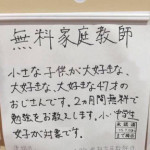 無料家庭教師
小さな子供が大好きな、
大好きな、大好きな47才の
おじさんです。2ヵ月間無料で
勉強をお教えします。小・中学生
女子が対象です。